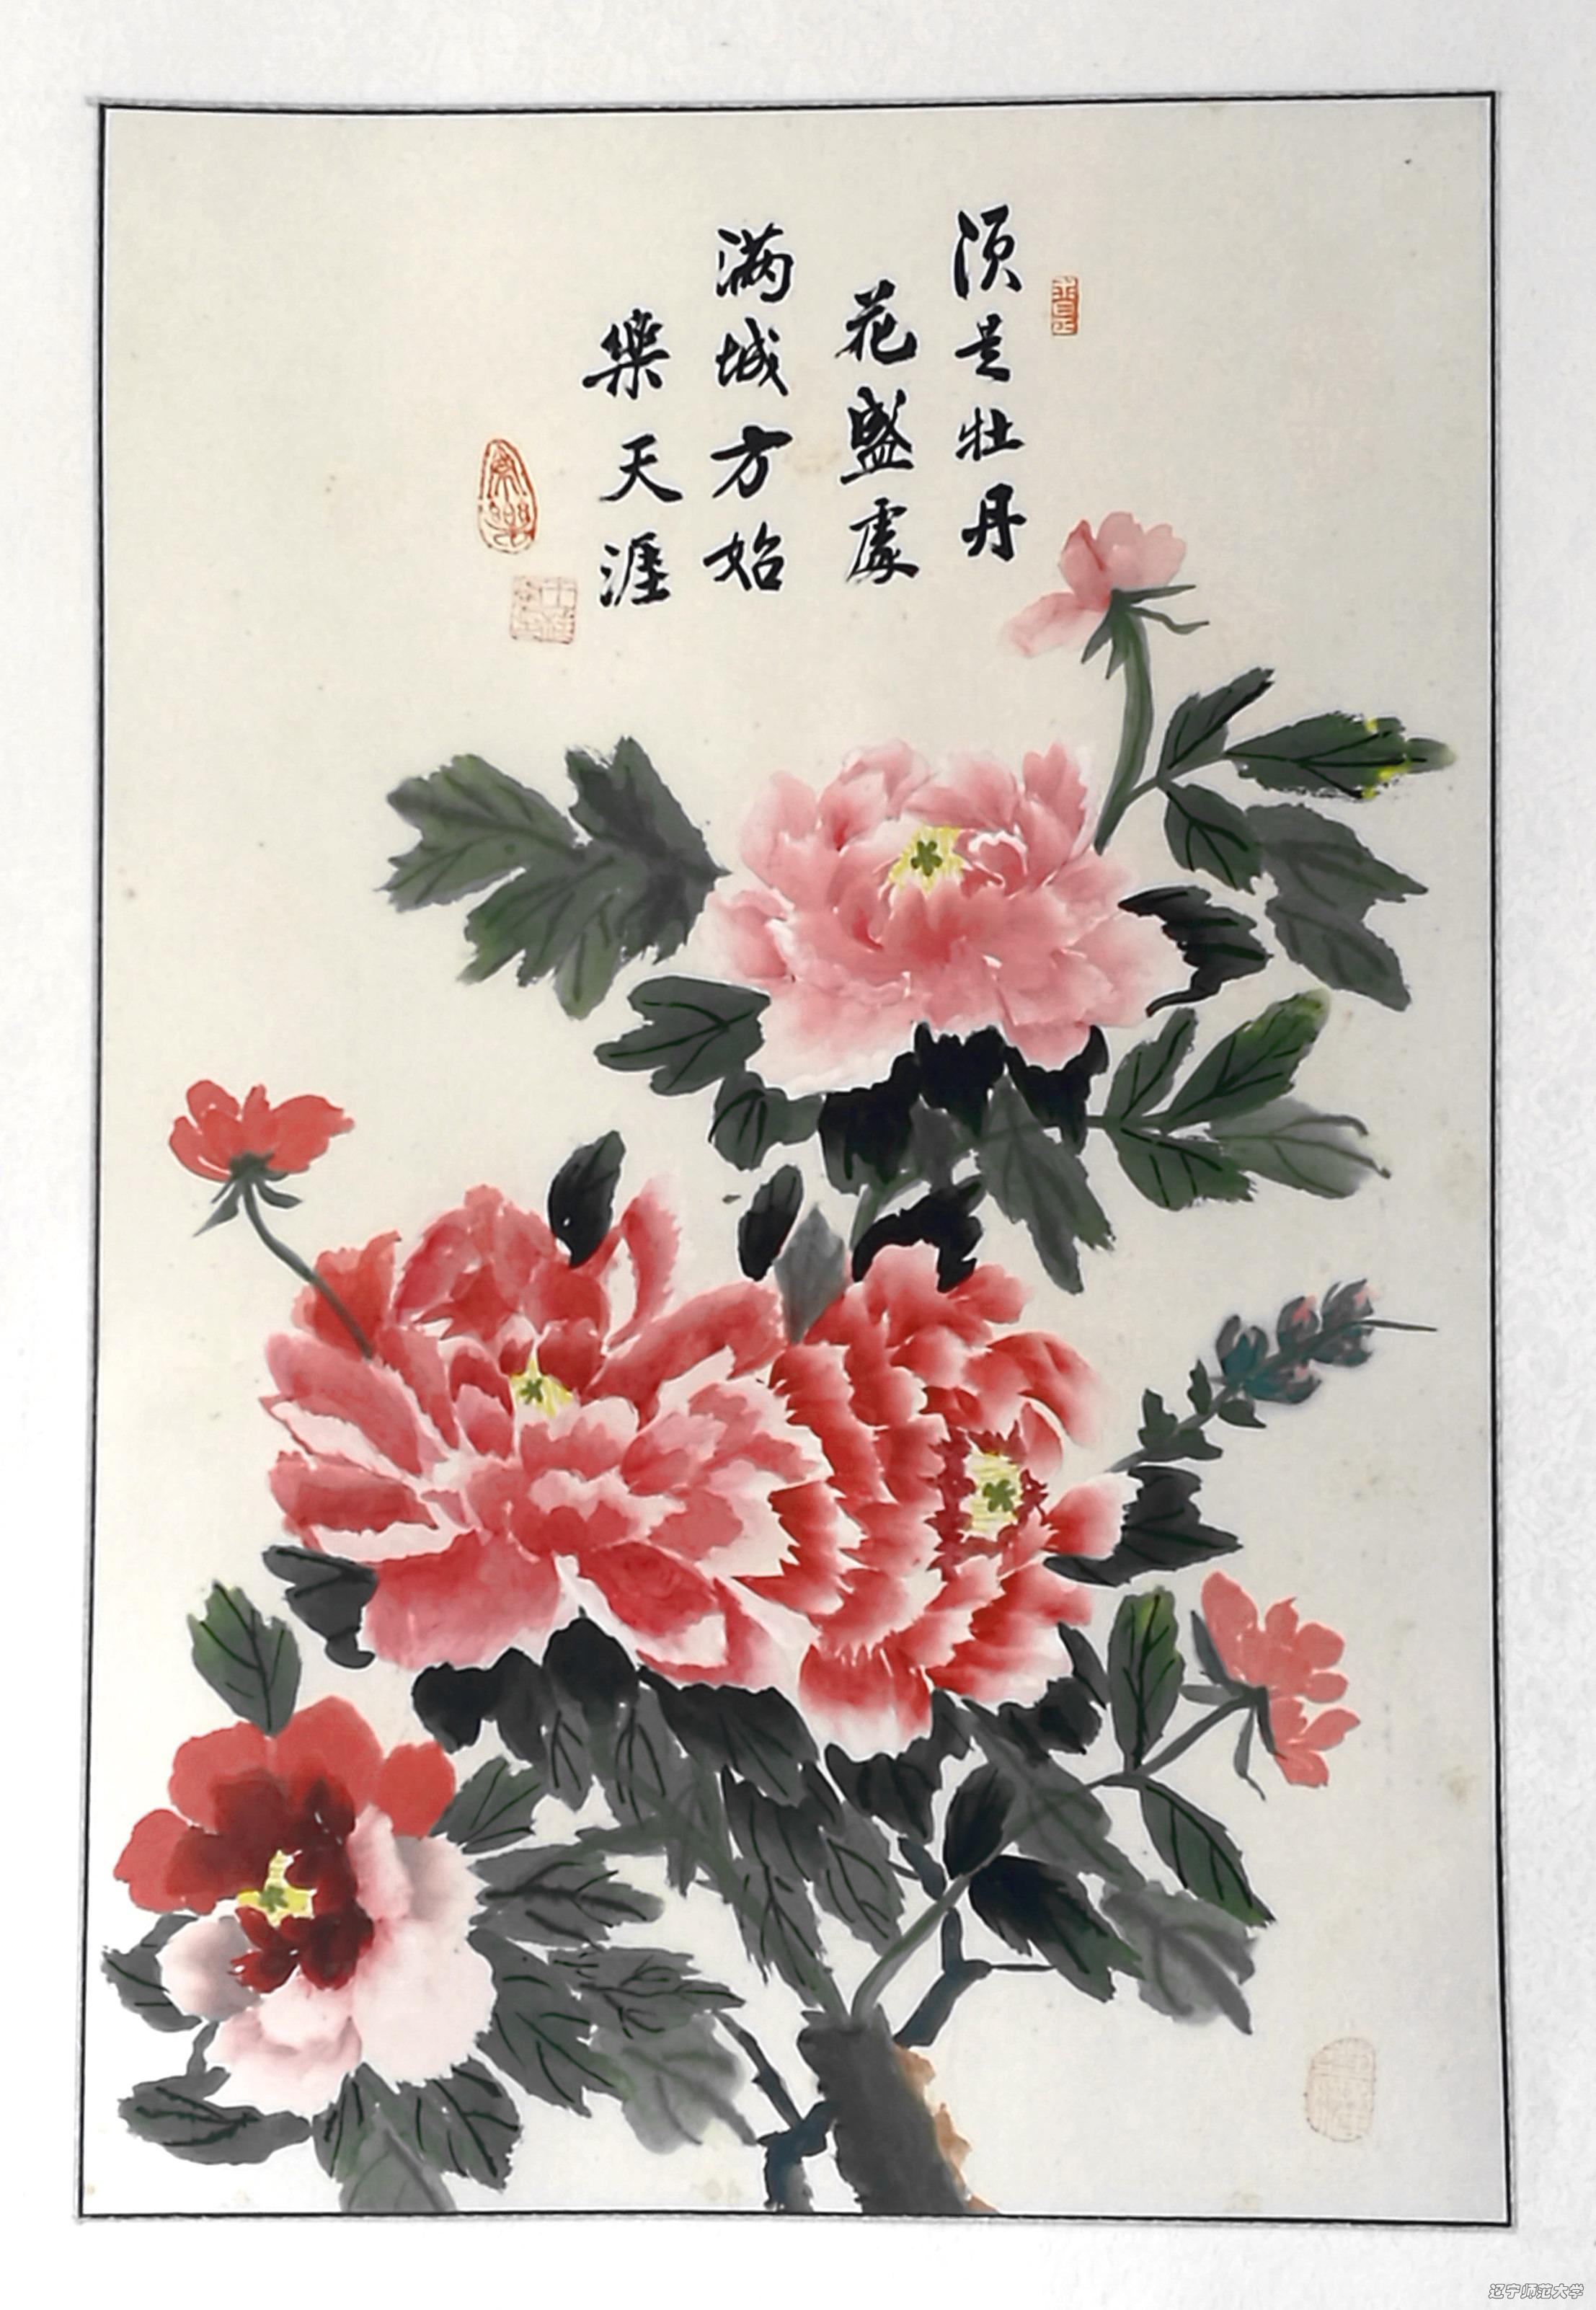 须是牡丹
花盛處
满城方始
樂天涯
辽宁师范大学